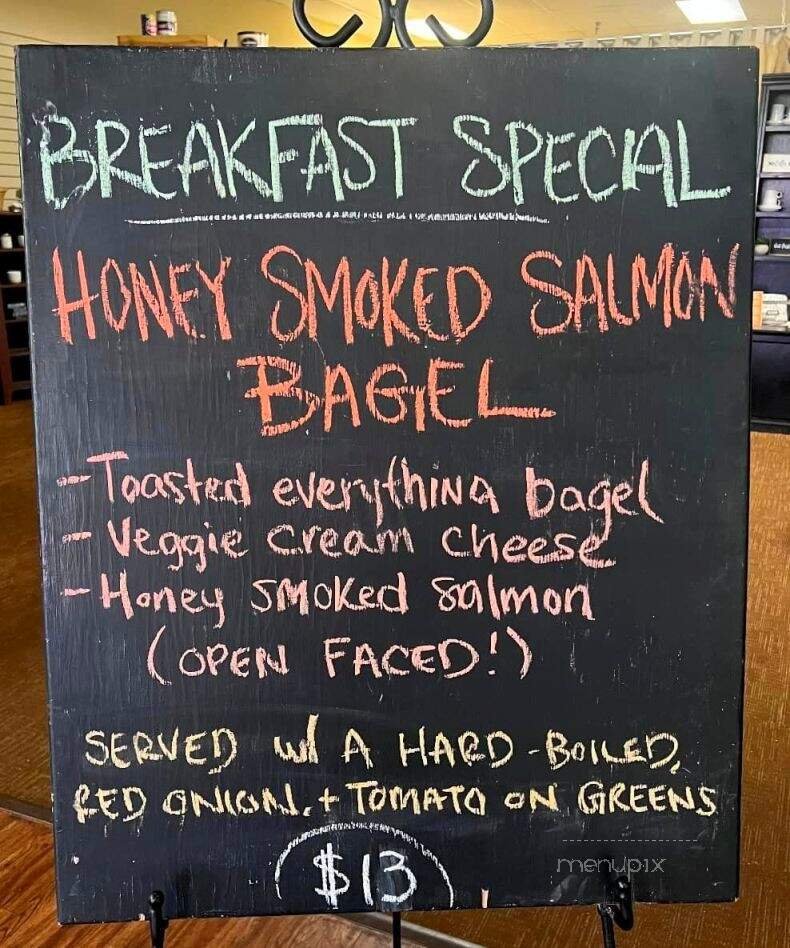 BREAKFAST SPECIAL
HONEY SMOKED SALMON
BAGEL
- Toasted everything bagel
- Veggie cream cheese
- Honey smoked salmon
(OPEN FACED!)
SERVED w/ A HARD-BOILED,
RED ONION, + TOMATO ON GREENS
$13
menupix